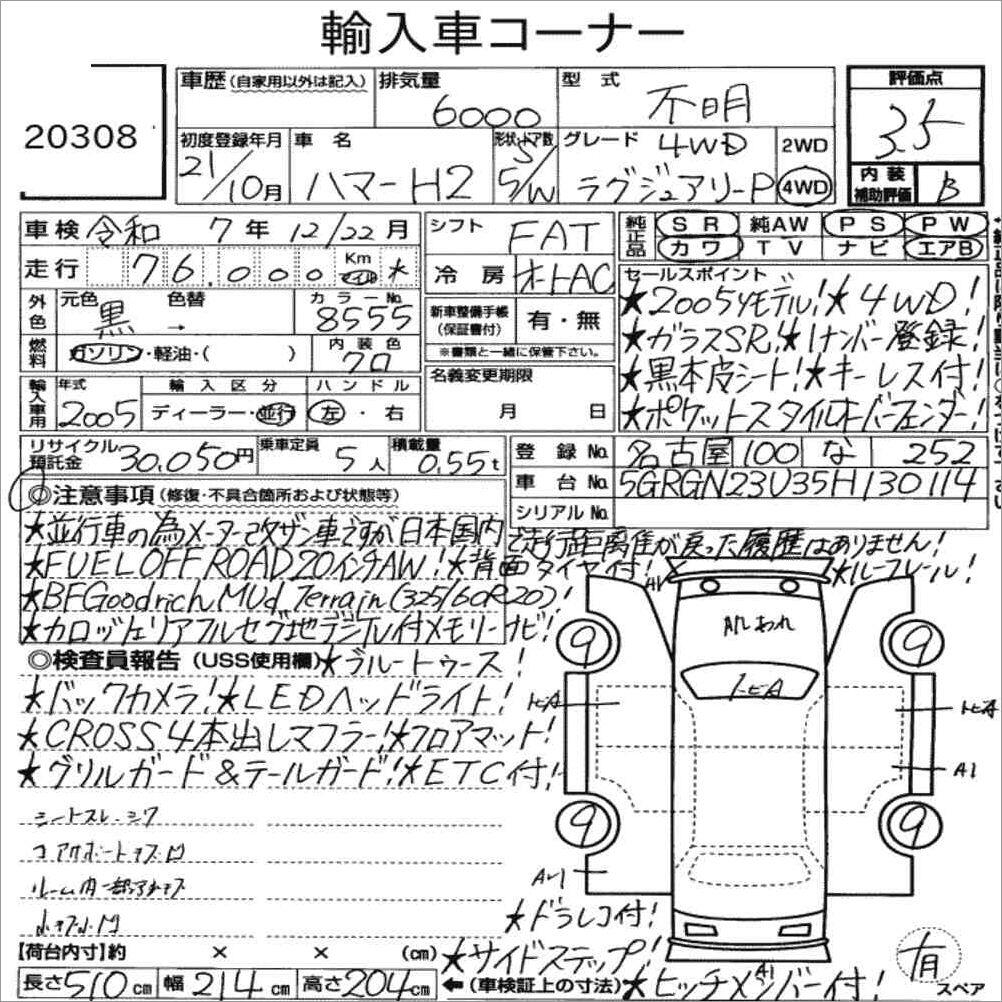 輸入車コーナー
20308
車歴(自家用以外は記入)
排気量
6000
型式
不明
評価点
3.5
初度登録年月
21/10月
車名
ハマーH2
形状・ドア数
5/W
グレード
4WD
ラグジュアリーP
2WD
4WD
内装
補助評価
B
車検 令和 7年 12/22月
シフト
FAT
純正品
SR 純AW PS PW
カワ TV ナビ エアB
走行 76,000 Km マイル *
冷房
オートAC
セールスポイント
★2005yモデル!★4WD!
★ガラスSR!★1ナンバー登録!
★黒本皮シート!★キーレス付!
★ポケットスタイルオーバーフェンダー!
外色
元色
黒
色替
→
カラーNo.
8555
新車整備手帳
(保証書付)
有・無
※書類と一緒に保管下さい。
燃料
ガソリン・軽油・( )
内装色
クロ
名義変更期限
月 日
輸入車用
年式
2005
輸入区分
ディーラー・並行
ハンドル
左・右
リサイクル預託金
30,050円
乗車定員
5人
積載量
0.55t
登録No.
名古屋 100 な 252
車台No.
5GRGN23U35H130114
シリアルNo.
◎注意事項(修復・不具合箇所および状態等)
★並行車の為メーター改ザン車ですが日本国内で走行距離集が戻った履歴はありません!
★FUEL OFF ROAD 20インチAW!★背面タイヤ付!★ルーフレール!
★BFGoodrich Mud Terrain(325/60R20)!
★カロッツェリアフルセグ地デジTV付メモリーナビ!
◎検査員報告(USS使用欄)★ブルートゥース!
★バックカメラ!★LEDヘッドライト!
★CROSS4本出しマフラー!★フロアマット!
★グリルガード&テールガード!★ETC付!
シートスレ・シワ
コアサポートキズ凹
ルーム内一部プラキズ
A1
X
9
9
9
9
トビA
トビA
トビA
A1
A-1
★ドラレコ付!
★サイドステップ!
★ヒッチメンバー付!
A1
有
スペア
【荷台内寸】約 × × (cm)
長さ510cm 幅214cm 高さ204cm ←(車検証上の寸法)